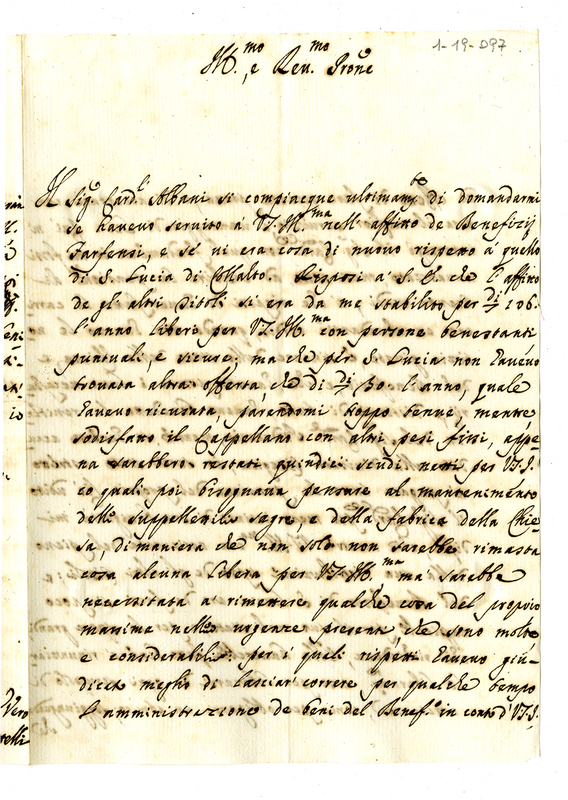 1-19-D97
Ill.mo, e Rev.mo Prone
Il Sig.r Card.l Albani si compiacque ultimam.te di domandarmi
se havevo servito à V.S. Ill.ma nell'affitto de Benefizij
Farfensi, e se vi era cosa di nuovo rispetto à quello
di S. Lucia di Collalto. Risposi à S. E. che l'affitto
de gl'altri Titoli si era da me stabilito per 106.
l'anno liberi per V.S. Ill.ma con persone benestanti
puntuali, e sicure; ma che per S. Lucia non havevo
trovata altra offerta, che di 30. l'anno, quale
havevo ricusata, parendomi troppo tenue, mentre
sodisfatto il Cappellano con altri pesi fissi, appe-
na sarebbero restati quindici scudi netti per V.S. I.
co quali poi bisognava pensare al mantenimento
delle suppellettili sagre, e della fabrica della Chie-
sa, di maniera che non solo non sarebbe rimasta
cosa alcuna libera per V.S. Ill.ma ma sarebbe
necessitata à rimettere qualche cosa del proprio
massime nelle urgenze presenti, che sono molte
e considerabili: per i quali rispetti havevo giu-
dicato meglio di lasciar correre per qualche tempo
l'amministrazione de beni del Benef.o in conto d'V.S. I.